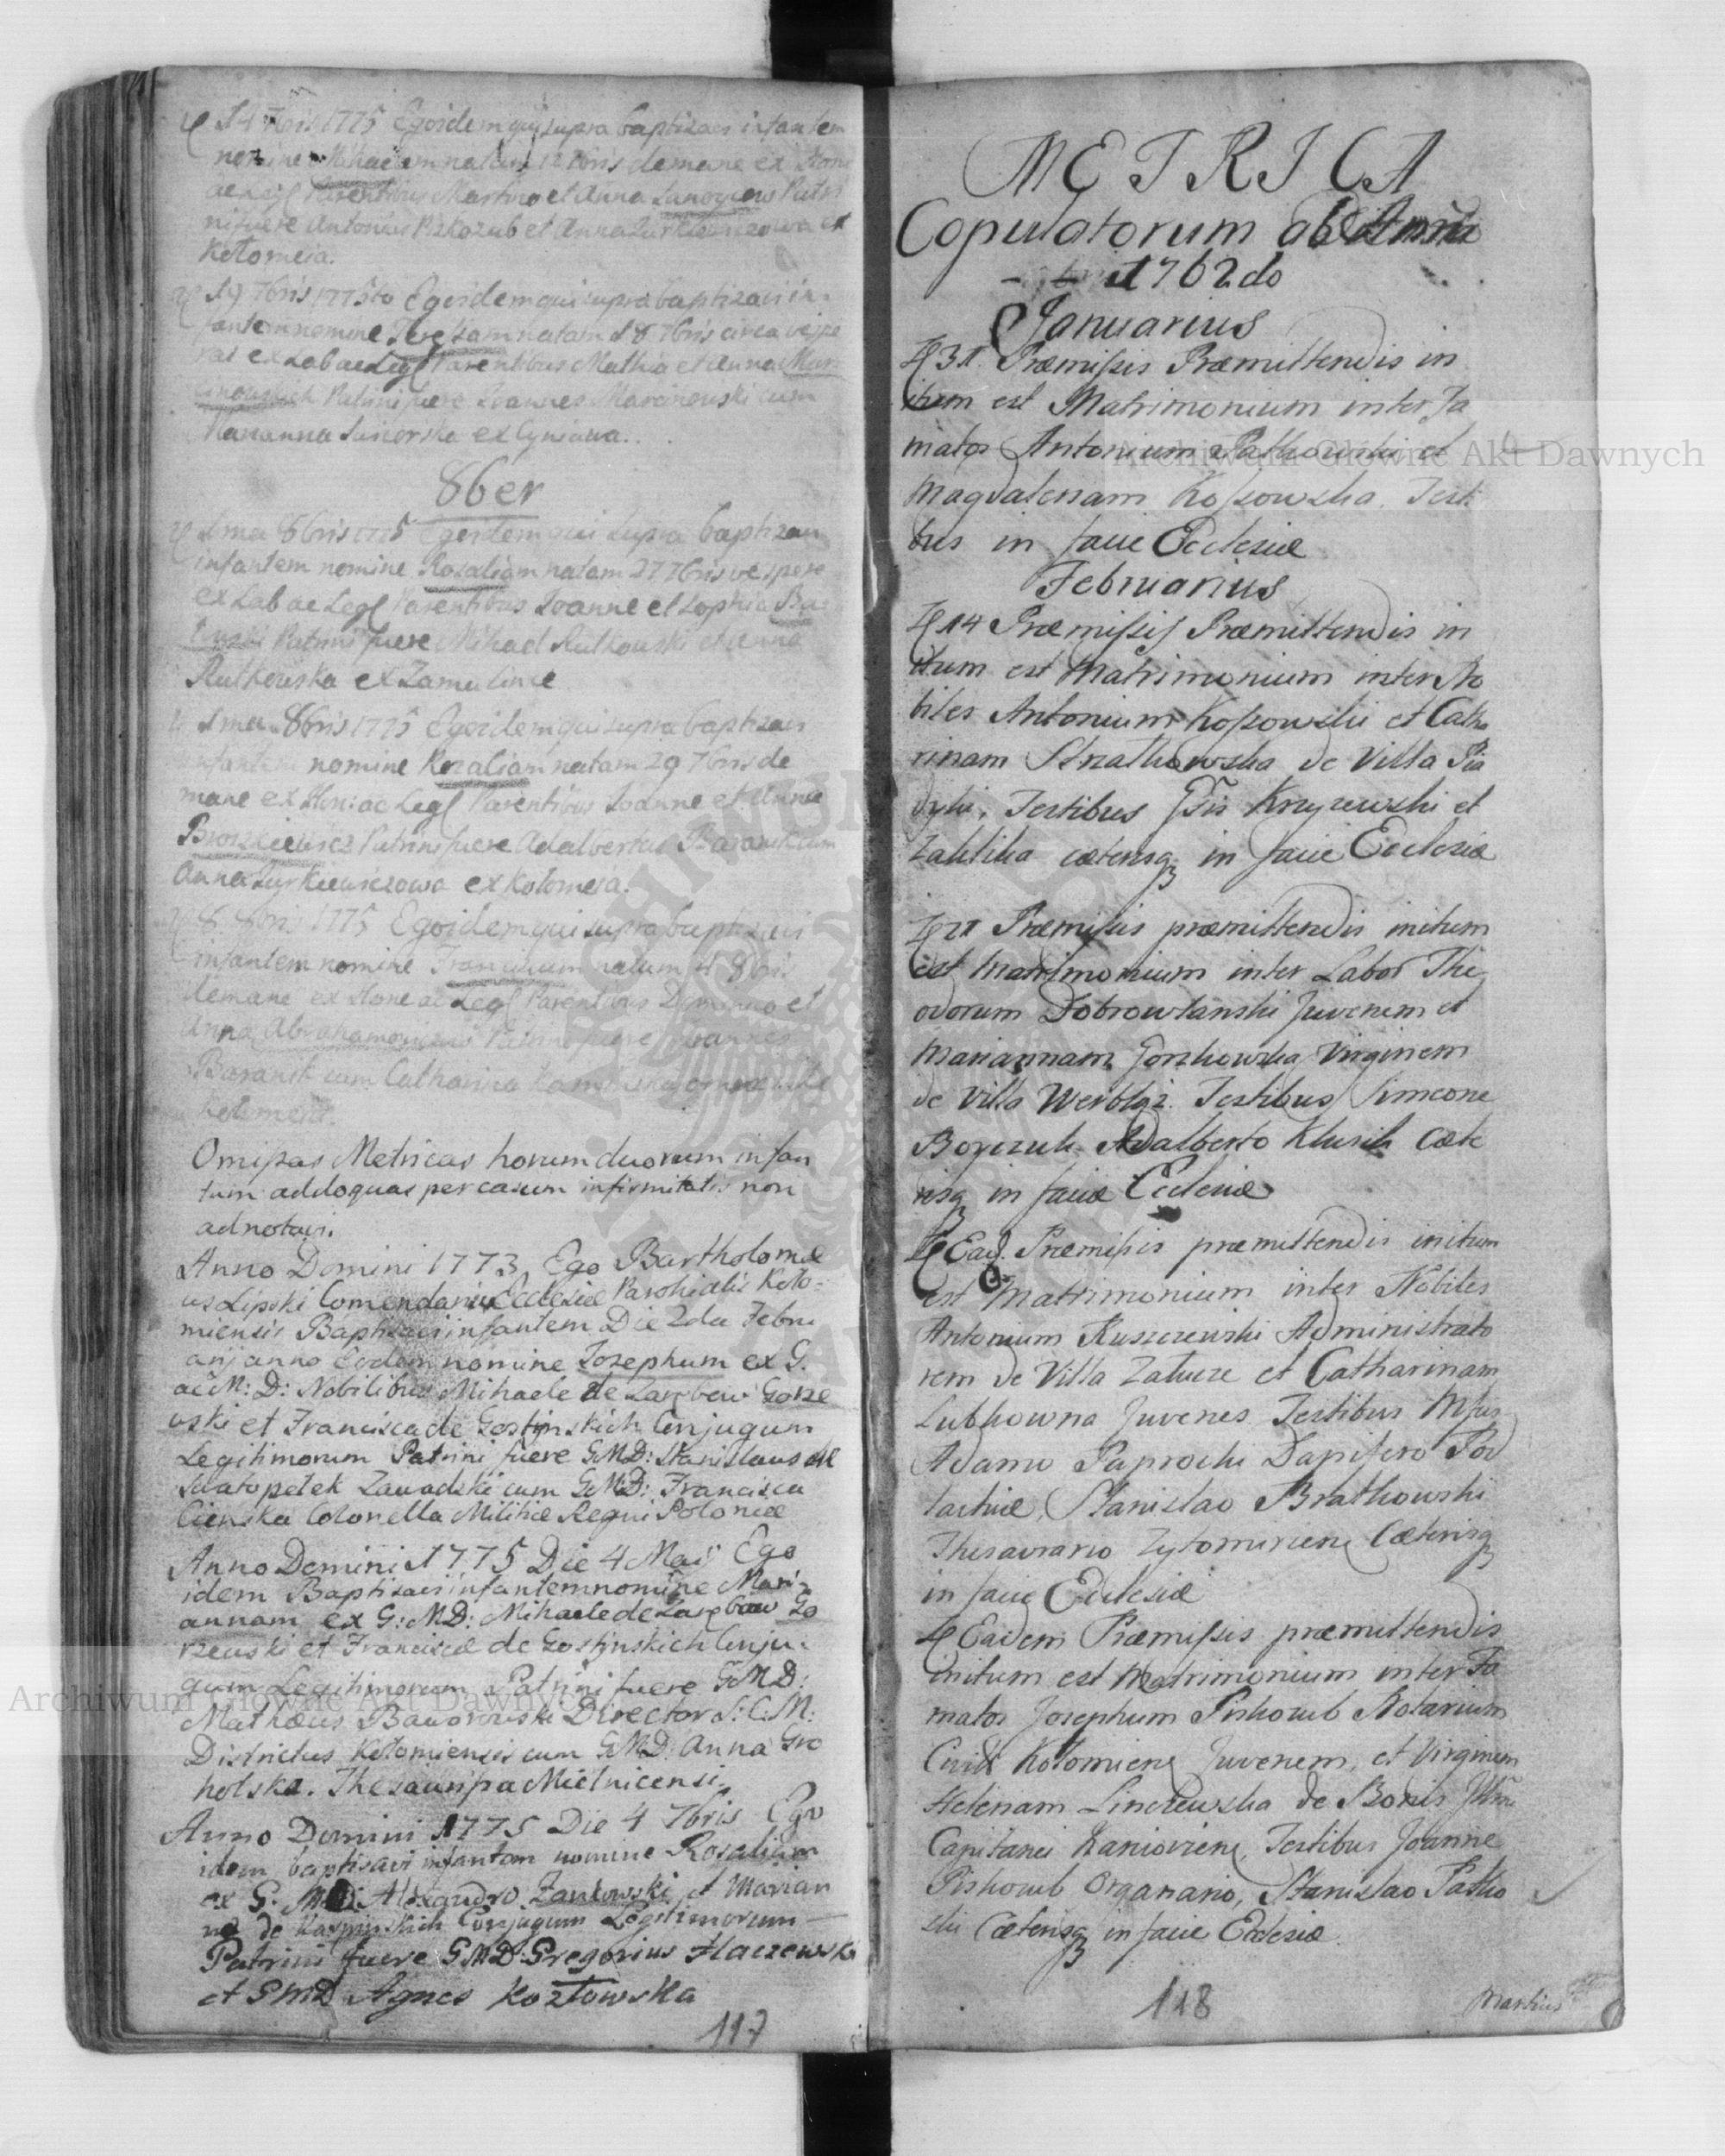 14 7bris 1775 Egoidem qui supra baptisavi infantem
nomine Mihaelem natum 12 7bris demane ex Hone
ac Legl Parentibus Martino et Anna Patri
ni fuere Antonius Piskozub et Anna Zurkiewiczowa ex
Kołomeia.
19 7bris 1775to Egoidem qui supra baptisavi in-
fantem nomine Theresiam natam 18 7bris circa vespe
ras ex Lab ac Legl Parentibus Mathia et Anna Mar
cinowskich Patrini fuere Joannes Marcinowski cum
Marianna ex Cyniawa.
86er
1ma 8bris 1775 Egoidem qui supra baptisavi
infantem nomine Rosaliam natam 27 7bris vespere
ex Lab ac Legl Parentibus Joanne et Sophia
Patrini fuere Mihael Rutkowski et Anna
Rutkowska ex Zamulince
1ma 8bris 1775 Egoidem qui supra baptisavi
infantem nomine Rozaliam natam 29 7bris de
mane ex Hon: ac Legl Parentibus Joanne et Anna
Broszkiewicz Patrini fuere Adalbertus Baranik cum
Anna Zurkiewiczowa ex Kolomeia.
8 8bris 1775 Egoidem qui supra baptisavi
infantem nomine Franciscum natum 4 8bris
demane ex Hone ac Legl Parentibus Dominico et
Anna Abrahamowicz Patrini fuere Joannes
Baranik cum Catharina Kaminska
Kolomeia.
Omissas Metricas horum duorum infan
tum addo quas per casum infirmitatis non
adnotavi.
Anno Domini 1773, Ego Bartholomæ
us Lipski Comendarius Ecclesiæ Parohialis Koło-
miensis Baptisavi infantem Die 2da Febru
arij anno Eodem nomine Josephum ex G.
ac M: D: Nobilibus Mihaele de Zarębow Gorze
wski et Francisca de Gostynskich Conjugum
Legitimorum Patrini fuere GMD: Stanislaus de
Swatopełek Zawadzki cum GMD: Francisca
Cienska Colonella Militiæ Regni Poloniæ
Anno Domini 1775 Die 4 Maij Ego
idem Baptisavi infantem nomine Mari-
annam ex G: MD: Mihaele de Zarębow Go
rzewski et Francisca de Gostynskich Conju-
gum Legitimorum Patrini fuere GMD:
Mathæus Baworowski Director S: C: M:
Districtus Kołomiensis cum GMD: Anna Gro
holska. Thesauripa Mielnicensi.
Anno Domini 1775 Die 4 7bris Ego
idem baptisavi infantem nomine Rosaliam
ex G. MD: Alexandro Zankowski et Marian
na de Karpinskich Conjugum Legitimorum
Patrini fuere GMD: Gregorius Haczewski
et GMD Agnes Kozłowska
117
METRICA
Copulatorum ab Anno
1762do
Januarius
31 Præmissis Præmittendis in
itum est Matrimonium inter Fa
matos Antonium Pathowski et
Magdalenam Kossowska. Testi
bus in facie Ecclesiæ
Februarius
14 Præmissis Præmittendis in
itum est Matrimonium inter No
biles Antonium Kossowski et Catha
rinam Strzałkowska de Villa Pia
dyki, Testibus Gsis Krzyzewski et
Zaklika cæterisq in facie Ecclesiæ
21 Præmissis præmittendis initum
est Matrimonium inter Labor The
odorum Dobrowlanski Juvenem et
Mariannam Gorzkowska Virginem
de Villa Werbląz. Testibus Simeone
Boyczuk Adalberto Klusik cæte
risq in facie Ecclesiæ
Ead. Præmissis præmittendis initum
est Matrimonium inter Nobiles
Antonium Ruszczewski Administrato
rem de Villa Załucze et Catharinam
Lubkowna Juvenes Testibus Msis
Adamo Paprocki Dapifero Pod
lachiæ, Stanislao Bratkowski
Thesaurario Zytomiriens Cæterisq
in facie Ecclesiæ
Eadem Præmissis præmittendis
initum est Matrimonium inter Fa
matos Josephum Piskozub Notarium
Civit Kołomiens Juvenem, et Virginem
Helenam Linczewska de Bonis Illmi
Capitanei Kanioviens, Testibus Joanne
Piskozub Organario, Stanislao Patko
ski Cæterisq in facie Ecclesiæ.
118
Martius
Archiwum Główne Akt Dawnych
Archiwum Główne Akt Dawnych